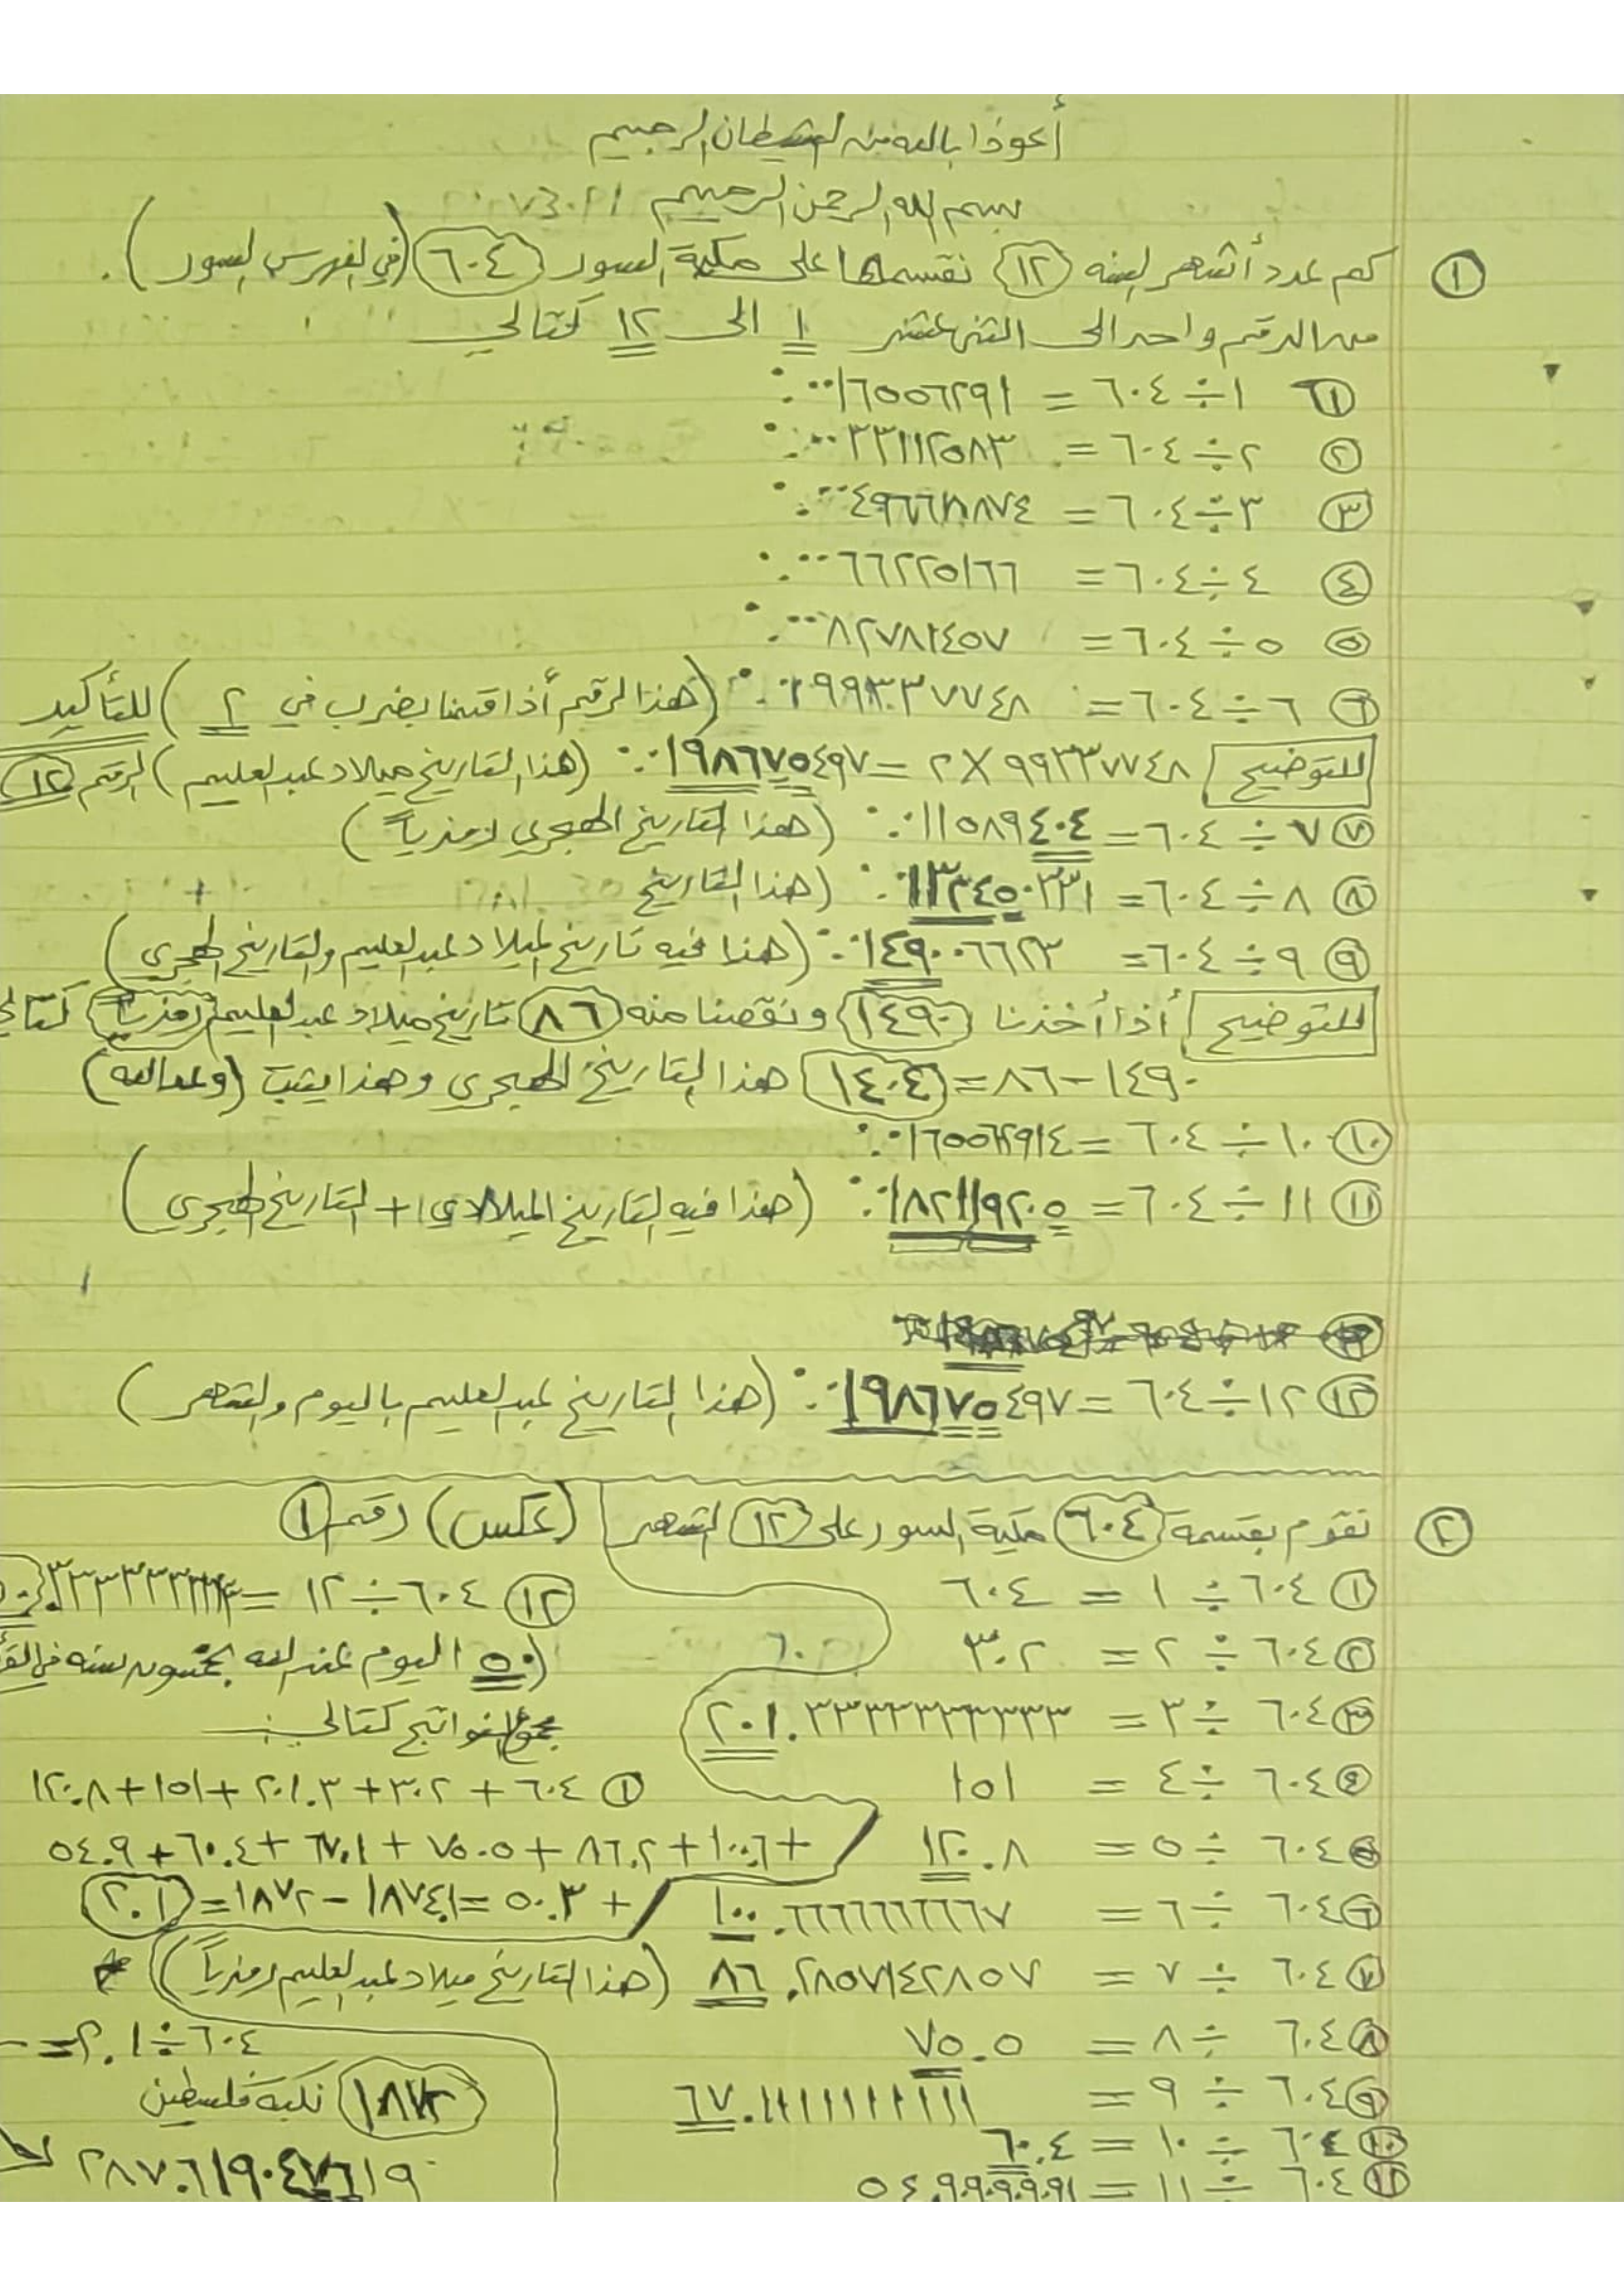 أعوذا بالله من الشيطان الرجيم
بسم الله الرحمن الرحيم
① كم عدد أشهر السنه (١٢) نقسمها على مكية السور (٦٠٤) (في الفهرس السور).
من الرقم واحد الى اثنى عشر ١ الى ١٢ كتالي
① ١ ÷ ٦٠٤ = ٠.٠٠١٦٥٥٦٢٩١
② ٢ ÷ ٦٠٤ = ٠.٠٠٣٣١١٢٥٨٣
③ ٣ ÷ ٦٠٤ = ٠.٠٠٤٩٦٦٨٨٧٤
④ ٤ ÷ ٦٠٤ = ٠.٠٠٦٦٢٢٥١٦٦
⑤ ٥ ÷ ٦٠٤ = ٠.٠٠٨٢٧٨١٤٥٧
⑥ ٦ ÷ ٦٠٤ = ٩٩٣٣٧٧٤٨ (هذا الرقم أذا قمنا بضرب في ٢) للتأكيد
للتوضيح ٩٩٣٣٧٧٤٨ × ٢ = ٠.٠١٩٨٦٧٥٤٩٧ (هذا التاريخ ميلاد عبدالعليم) الرقم (١٢)
⑦ ٧ ÷ ٦٠٤ = ٠.٠١١٥٨٩٤٠٤ (هذا التاريخ الهجري رمزياً)
⑧ ٨ ÷ ٦٠٤ = ٠.٠١٣٢٤٥٠٣٣١ (هذا التاريخ
⑨ ٩ ÷ ٦٠٤ = ٠.٠١٤٩٠٠٦٦٢٣ (هنا فيه تاريخ الميلاد عبدالعليم والتاريخ الهجري)
للتوضيح أذا أخذنا (١٤٩٠) ونقصنا منه (٨٦) تاريخ ميلاد عبدالعليم (رمزياً)
١٤٩٠ - ٨٦ = (١٤٠٤) هذا التاريخ الهجري وهذا يثبت (وعدالله)
⑩ ١٠ ÷ ٦٠٤ = ٠.٠١٦٥٥٦٢٩١٤
⑪ ١١ ÷ ٦٠٤ = ٠.٠١٨٢١١٩٢٠٥ (هذا فيه التاريخ الميلادي + التاريخ الهجري)
⑫ ١٢ ÷ ٦٠٤ = ٠.٠١٩٨٦٧٥٤٩٧ (هذا التاريخ عبدالعليم باليوم والشهر)
② نقوم بقسمة (٦٠٤) مكية السور على (١٢) الشهر (عكس) رقم ①
① ٦٠٤ ÷ ١ = ٦٠٤
② ٦٠٤ ÷ ٢ = ٣٠٢
③ ٦٠٤ ÷ ٣ = ٢٠١.٣٣٣٣٣٣٣٣٣٣
④ ٦٠٤ ÷ ٤ = ١٥١
⑤ ٦٠٤ ÷ ٥ = ١٢٠.٨
⑥ ٦٠٤ ÷ ٦ = ١٠٠.٦٦٦٦٦٦٦٦٦٧
⑦ ٦٠٤ ÷ ٧ = ٨٦.٢٨٥٧١٤٢٨٥٧ (هذا التاريخ ميلاد عبدالعليم رمزياً)
⑧ ٦٠٤ ÷ ٨ = ٧٥.٥
⑨ ٦٠٤ ÷ ٩ = ٦٧.١١١١١١١١١١
⑩ ٦٠٤ ÷ ١٠ = ٦٠.٤
⑪ ٦٠٤ ÷ ١١ = ٥٤.٩٠٩٠٩٠٩٠٩١
⑫ ٦٠٤ ÷ ١٢ =
(٥٠) اليوم عند الله بخمسون سنه في
نواتج كتالي:
① ٦٠٤ + ٣٠٢ + ٢٠١.٣ + ١٥١ + ١٢٠.٨
+ ١٠٠.٦ + ٨٦.٢ + ٧٥.٥ + ٦٧.١ + ٦٠.٤ + ٥٤.٩
+ ٥٠.٣ = ١٨٧٤.١ - ١٨٧٢ = (٢.١)
٦٠٤ ÷ ٢.١ =
(١٨٧٢) نكبة فلسطين
٢٨٧.٦١٩٠٤٧٦١٩